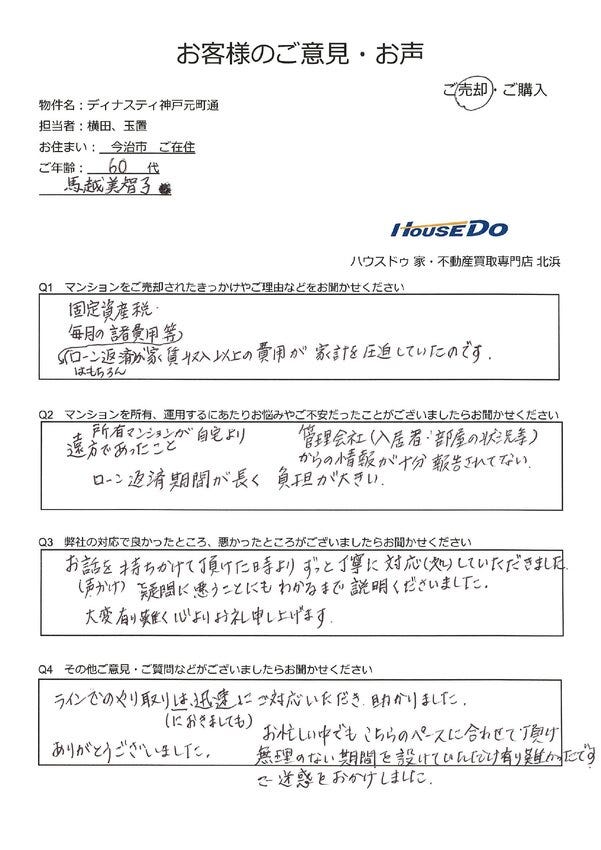 お客様のご意見・お声
ご売却・ご購入
物件名：ディナスティ神戸元町通
担当者：横田、玉置
お住まい： 今治市 ご在住
ご年齢： 60 代
馬越美智子
HOUSEDO
ハウスドゥ 家・不動産買取専門店 北浜
Q1 マンションをご売却されたきっかけやご理由などをお聞かせください
固定資産税・
毎月の諸費用等
ローン返済が家賃収入以上の費用が 家計を圧迫していたのです。
はもちろん
Q2 マンションを所有、運用するにあたりお悩みやご不安だったことがございましたらお聞かせください
所有マンションが自宅より
遠方であったこと
管理会社(入居者・部屋の状況等)
からの情報が十分報告されてない。
ローン返済期間が長く 負担が大きい.
Q3 弊社の対応で良かったところ、悪かったところがございましたらお聞かせください
お話を持ちかけて頂けた時よりずっと丁寧に対応していただきました
(声かけ) 疑問に思うことにもわかるまで説明くださいました.
大変有り難く心よりお礼申し上げます.
Q4 その他ご意見・ご質問などがございましたらお聞かせください
ラインでのやり取りは、迅速にご対応いただき助かりました.
(におきましても)
ありがとうございました.
お忙しい中でもこちらのペースに合わせて頂け
無理のない期間を設けていただけ有り難かったです
ご迷惑をおかけしました.